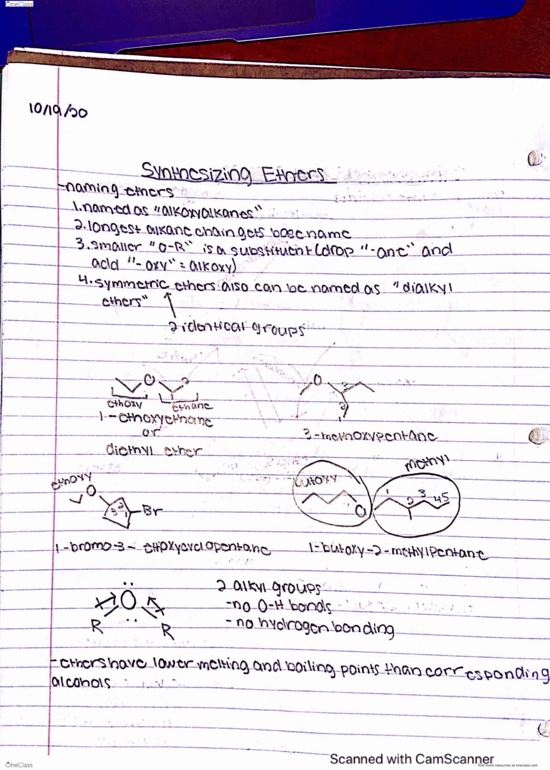 OneClass
10/19/20
Synthesizing Ethers
-naming ethers
1. named as "alkoxyalkanes"
2. longest alkane chain gets base name
3. smaller "O-R" is a substituent (drop "-ane" and
add "-oxy" = alkoxy)
4. symmetric ethers also can be named as "dialkyl
ethers"
2 identical groups
O 2
1
ethoxy ethane
1-ethoxyethane
or
diethyl ether
O 3
2
1
3-methoxypentane
ethoxy
O
3 2 1 Br
1-bromo-3-ethoxycyclopentane
methyl
butoxy
O 1 2 3 4 5
1-butoxy-2-methylpentane
O
R R
2 alkyl groups
-no O-H bonds
-no hydrogen bonding
-ethers have lower melting and boiling points than corresponding
alcohols
Scanned with CamScanner
OneClass
find more resources at oneclass.com